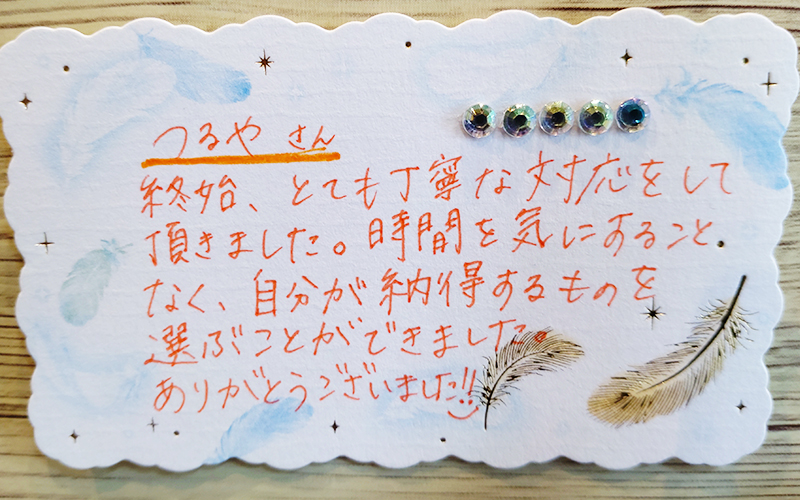 つるや さん
終始、とても丁寧な対応をして
頂きました。時間を気にすること
なく、自分が納得するものを
選ぶことができました。
ありがとうございました!!